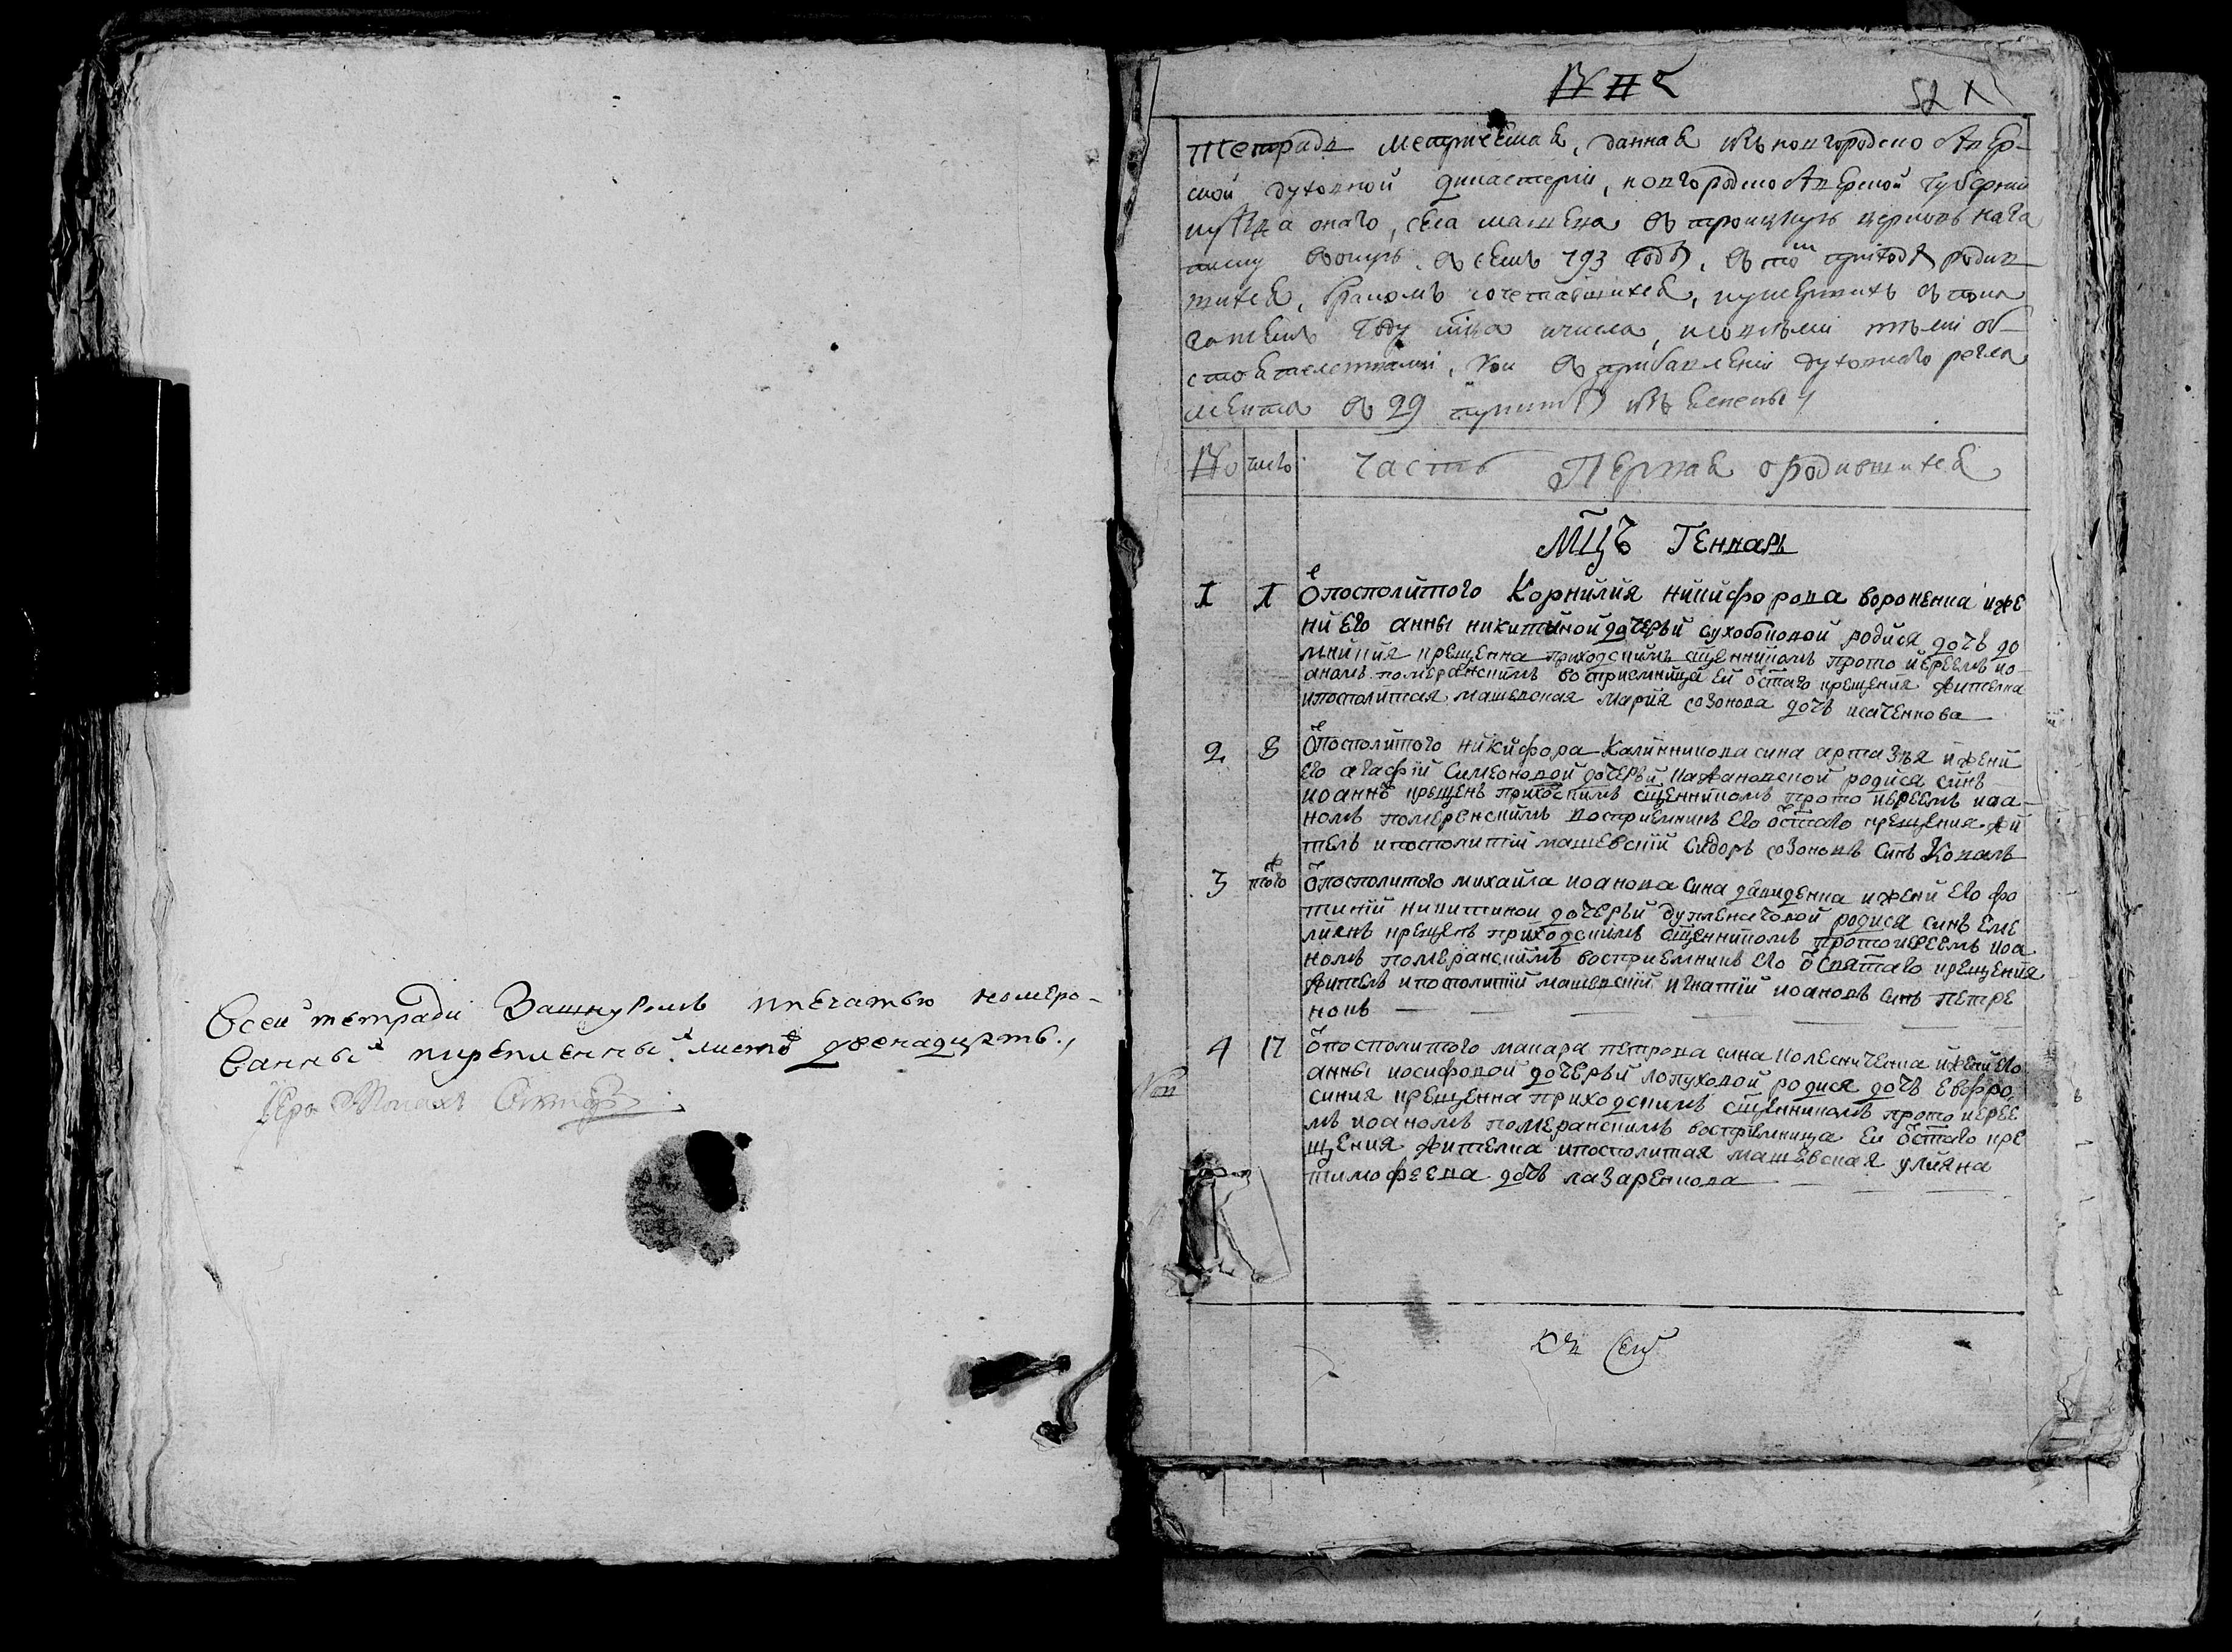 Всей тетради Зашнуромъ ипечатью номеро-
ванныхъ искрепленныхъ листовъ двенадцять.,
Іеро Монахъ
52 1
Тетрадь метрическая, данная изъ новгородсѣвер-
ской духовной дикастеріи, новгородсѣверской губерніи
оного, села машева въ троицкую церковь на за
писку въоную, въ семъ 793 годѣ, въ томъ приходѣ родив
шихся, бракомъ сочетавшихся, иумершихъ въ пока
занныхъ году мца ичисла, исовсѣмы тѣмы об
стоятелствамы, кои въ прибавленіи духовного регла
мента въ 29 пунктѣ изъяснены
№ число Часть Первая ородившихся
Мцъ Генварь
1 1 Ѿ посполитого Корнилия никифорова вороненка ижє
ни его анны никитиной дочерьи сухобоковой родися дочь до
мникия крещенна приходскимъ сщенникомъ прото иереемъ ио
аномъ померанскимъ восприемница ей ѿ стаго крещения жителка
ипосполитая машевская Мария созонова дочь исаченкова
2 8 Ѿ посполитого никифора Калинникова сина артазѣя ижени
его агафіи Симеоновой дочерьи кажановской родися синъ
иоаннъ крещенъ приходскимъ сщенникомъ прото иереемъ иоа-
номъ померенскимъ восприемникъ его ѿ стаго крещения жи
тель ипосполитій машевскій Сидоръ созоновъ синъ Коваль
3 тогож Ѿ посполитого михаила иоанова сина давиденка ижени его фо
тиніи никитиной дочерьи дуплєначовой родися синъ Емє
лиянъ крещенъ приходскимъ сщенникомъ протоиереемъ иоа
номъ померанскимъ восприемникъ его ѿ святаго крещения
житель ипосполитій машевскій игнатій иоановъ синъ петре
нокъ
4 17 Ѿ посполитого макара петрова сина колесниченка ижени его
анны иосифовой дочерьи лопуховой родися дочь Евфро
синия крещенна приходскимъ сщенникомъ прото иерее
мъ иоаномъ померанскимъ восприемница ей ѿ стаго кре
щения жителка ипосполитая машевская улияна
тимофеева дочь лазаренкова